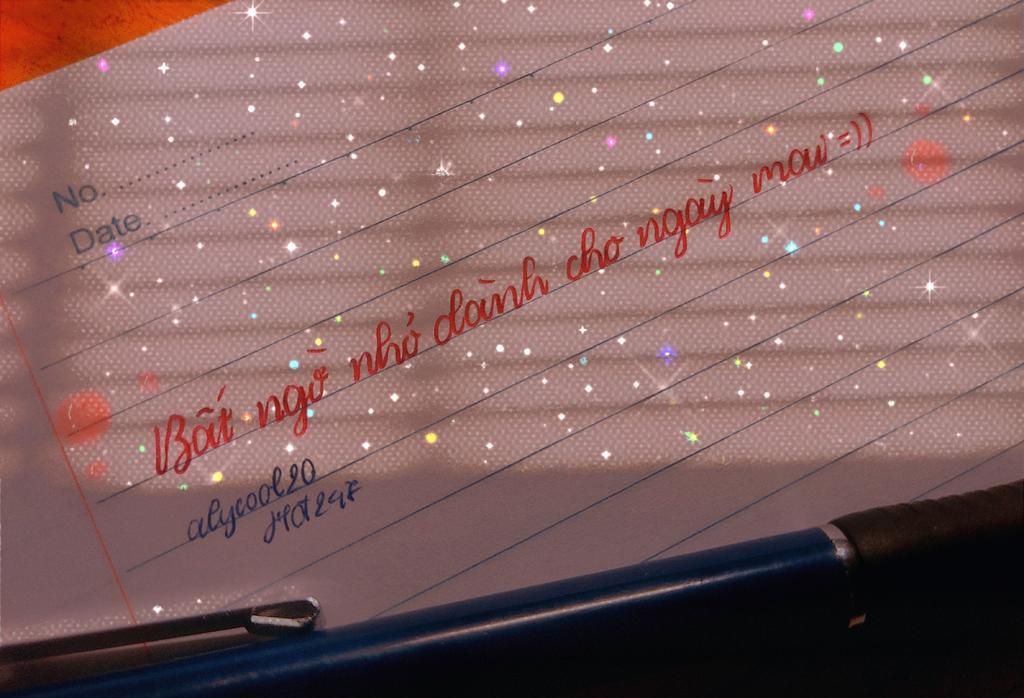 No.
Date.
Bất ngờ nhỏ dành cho ngày mau =))
alycool20